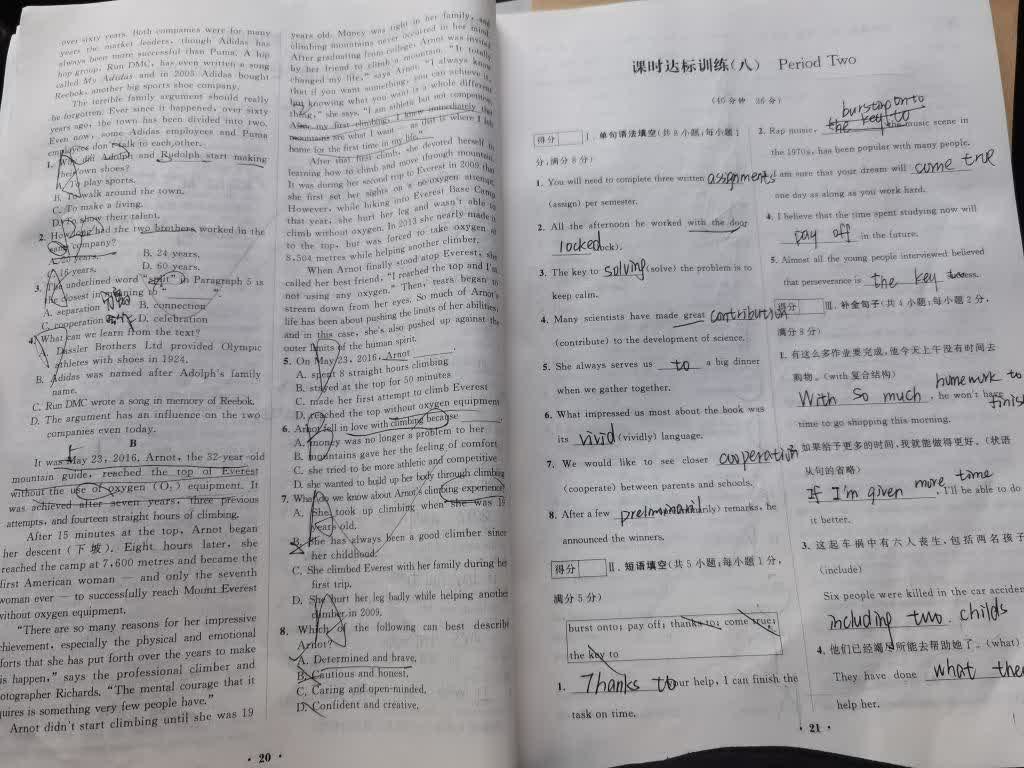 over sixty years. Both companies were for many
years the market leaders, though Adidas has
always been more successful than Puma. A hip
hop group, Run DMC, has even written a song
called My Adidas and in 2005 Adidas bought
Reebok, another big sports shoe company.
The terrible family argument should really
be forgotten. Ever since it happened, over sixty
years ago, the town has been divided into two.
Even now, some Adidas employees and Puma
employees don't talk to each other.
1. Why did Adolph and Rudolph start making
their own shoes?
A. To play sports.
B. To walk around the town.
C. To make a living.
D. To show their talent.
2. How long had the two brothers worked in the
company?
A. 20 years. B. 24 years.
C. 16 years. D. 60 years.
3. The underlined word "split" in Paragraph 5 is
the closest in meaning to
A. separation B. connection
C. cooperation D. celebration
4. What can we learn from the text?
A. Dassler Brothers Ltd provided Olympic
athletes with shoes in 1924.
B. Adidas was named after Adolph's family
name.
C. Run DMC wrote a song in memory of Reebok.
D. The argument has an influence on the two
companies even today.
B
It was May 23, 2016. Arnot, the 32-year-old
mountain guide, reached the top of Everest
without the use of oxygen (O₂) equipment. It
was achieved after seven years, three previous
attempts, and fourteen straight hours of climbing.
After 15 minutes at the top, Arnot began
her descent (下坡). Eight hours later, she
reached the camp at 7,600 metres and became the
first American woman — and only the seventh
woman ever — to successfully reach Mount Everest
without oxygen equipment.
"There are so many reasons for her impressive
achievement, especially the physical and emotional
efforts that she has put forth over the years to make
this happen," says the professional climber and
photographer Richards. "The mental courage that it
requires is something very few people have."
Arnot didn't start climbing until she was 19
years old. Money was tight in her family, and
climbing mountains never occurred in her mind.
After graduating from college, Arnot was invited
by her friend to climb a mountain. "It totally
changed my life," says Arnot. "I always knew
that if you want something, you can achieve it,
but knowing what you want is a whole different
thing," she says. "I am athletic but not competitive.
After my first climbing, I knew immediately that
mountains are what I want — as that is where I felt
home for the first time in my life."
After that first climb, she devoted herself to
learning how to climb and move through mountains.
It was during her second trip to Everest in 2009 that
she first set her sights on a no-oxygen attempt.
However, while hiking into Everest Base Camp
that year, she hurt her leg and wasn't able to
climb without oxygen. In 2013 she nearly made it
to the top, but was forced to take oxygen at
8,504 metres while helping another climber.
When Arnot finally stood atop Everest, she
called her best friend, "I reached the top and I'm
not using any oxygen." Then, tears began to
stream down her eyes. So much of Arnot's
life has been about pushing the limits of her abilities,
and in this case, she's also pushed up against the
outer limits of the human spirit.
5. On May 23, 2016, Arnot
A. spent 8 straight hours climbing
B. stayed at the top for 50 minutes
C. made her first attempt to climb Everest
D. reached the top without oxygen equipment
6. Arnot fell in love with climbing because
A. money was no longer a problem to her
B. mountains gave her the feeling of comfort
C. she tried to be more athletic and competitive
D. she wanted to build up her body through climbing
7. What do we know about Arnot's climbing experience?
A. She took up climbing when she was 19
years old.
B. She has always been a good climber since
her childhood.
C. She climbed Everest with her family during her
first trip.
D. She hurt her leg badly while helping another
climber in 2009.
8. Which of the following can best describe
Arnot?
A. Determined and brave.
B. Cautious and honest.
C. Caring and open-minded.
D. Confident and creative.
· 20 ·
课时达标训练(八) Period Two
(40分钟 36分)
得分 Ⅰ. 单句语法填空(共8小题;每小题1
分,满分8分)
1. You will need to complete three written assignments
(assign) per semester.
2. All the afternoon he worked with the door
locked (lock).
3. The key to solving (solve) the problem is to
keep calm.
4. Many scientists have made great contribution
(contribute) to the development of science.
5. She always serves us to a big dinner
when we gather together.
6. What impressed us most about the book was
its vivid (vividly) language.
7. We would like to see closer cooperation
(cooperate) between parents and schools.
8. After a few remarks, he
announced the winners.
得分 Ⅱ. 短语填空(共5小题;每小题1分,
满分5分)
burst onto; pay off; thanks to; come true;
the key to
1. Thanks to your help, I can finish the
task on time.
burst onto
2. Rap music, the key to the music scene in
the 1970s, has been popular with many people.
3. I am sure that your dream will come true
one day as along as you work hard.
4. I believe that the time spent studying now will
pay off in the future.
5. Almost all the young people interviewed believed
that perseverance is the key to success.
得分 Ⅲ. 补全句子(共4小题;每小题2分,
满分8分)
1. 有这么多作业要完成,他今天上午没有时间去
购物。(with复合结构)
With so much homework to finish, he won't have
time to go shopping this morning.
2. 如果给予更多的时间,我就能做得更好。(状语
从句的省略)
If I'm given more time, I'll be able to do
it better.
3. 这起车祸中有六人丧生,包括两名孩子
(include)
Six people were killed in the car accident
including two childs
4. 他们已经竭尽所能去帮助她了。(what)
They have done what the
help her.
· 21 ·